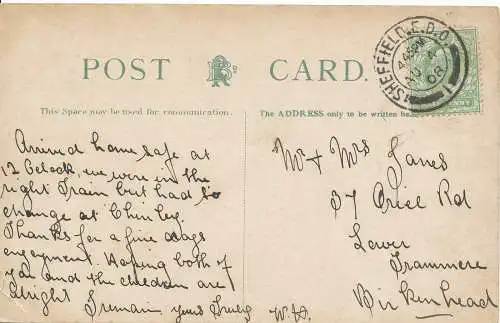 POST CARD.
This Space may be used for communication.
The ADDRESS only to be written here
SHEFFIELD. E.D.O.
4.45PM
08
1
PENNY
Arrived home safe at
12 Oclock, we were in the
right Train but had to
change at Chinley.
Thanks for a fine days
enjoyment. Hoping both of
you and the children are
alright I remain yours Truly W.H.
Mr + Mrs Janes
37 Oriel Rd
Lower
Tranmere
Birkenhead